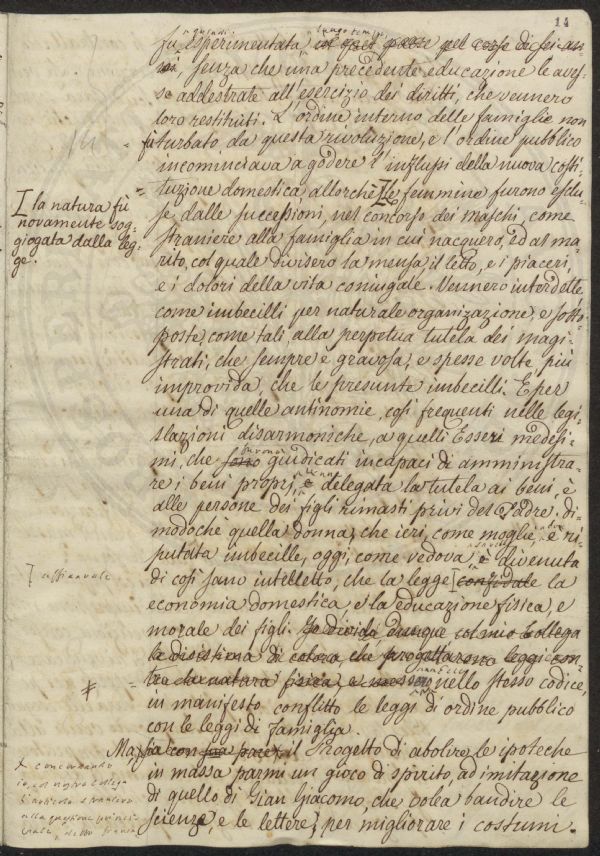 14
fu esperimentata
lungo tempo
senza che una precedente educazione le aves-
se addestrate all'esercizio dei diritti, che vennero
loro restituiti. L'ordine interno delle famiglie non
fu turbato da questa rivoluzione, e l'ordine pubblico
incominciava a godere l'influssi della nuova costi-
tuzione domestica allorchè le femmine furono esclu-
I la natura fù
novamente sog-
giogata dalla leg-
ge.
se dalle successioni, nel concorso dei maschi, come
straniere alla famiglia in cui nacquero, ed al ma-
rito, col quale divisero la mensa, il letto, e i piaceri,
e i dolori della vita coniugale. Vennero interdette
come imbecilli per naturale organizazione, e sotto-
poste, come tali, alla perpetua tutela dei magi-
strati, che sempre è gravosa, e spesse volte più
improvida, che le presunte imbecilli. E per
una di quelle antinomie, così frequenti nelle legi-
slazioni disarmoniche, a quelli Esseri medesi-
mi, che sono furono giudicati incapaci di amministra-
re i beni propri, è venne delegata la tutela ai beni, e
alle persone dei figli rimasti privi del Padre. Di-
modochè quella donna, che ieri, come moglie, è ri-
putata imbecille, oggi, come vedova, è divenuta
di così sano intelletto, che la legge confidale la
7 affidavale
economia domestica, e la educazione fisica, e
morale dei figli. Io divido dunque col mio Collega
la disistima di coloro, che progettarono leggi con-
tro la natura fisica, e nello stesso codice,
in manifesto conflitto le leggi di ordine pubblico
con le leggi di famiglia.
Ma con sua pace, il Progetto di abolire le ipoteche
in massa parmi un gioco di spirito, ad imitazione
di quello di Gian Giacomo, che volea bandire le
scienze, e le lettere, per migliorare i costumi.
concordando
io, col nostro Collega